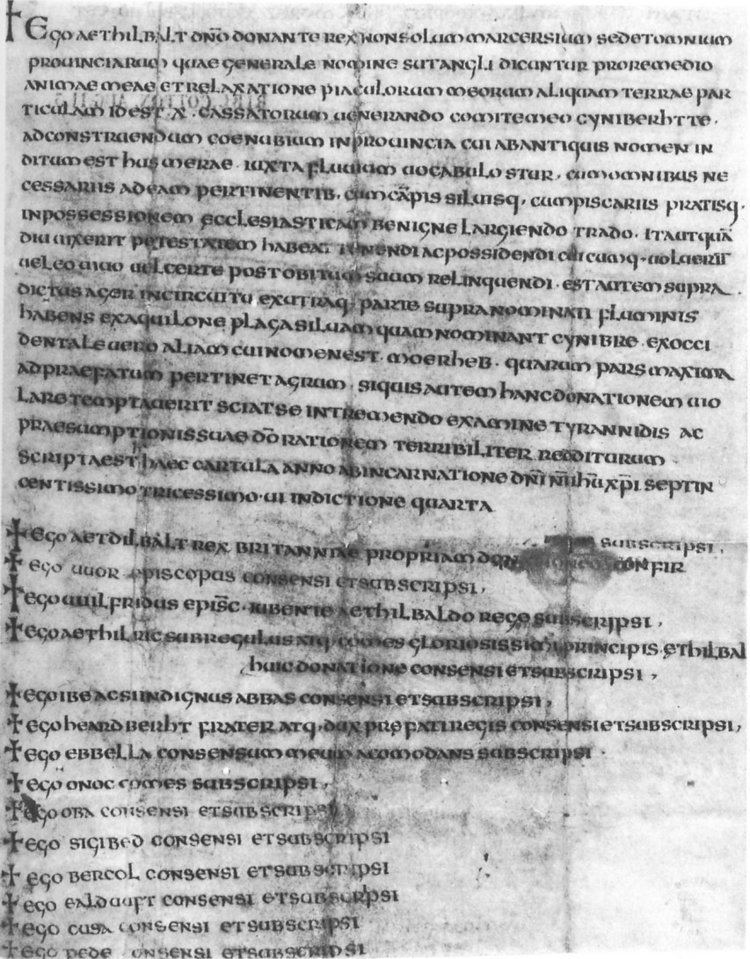 † Ego aethilbalt dn̄o donante rex non solum marcersium sed et omnium
prouinciarum quae generale nomine sutangli dicuntur pro remedio
animae meae et relaxatione piaculorum meorum aliquam terrae par
ticulam id est .x. cassatorum uenerando comite meo cyniberhtte .
ad construendum coenubium in prouincia cui ab antiquis nomen in
ditum est husmerae . iuxta fluuium uocabulo stur . cum omnibus ne
cessariis ad eam pertinentib. cum cāpis siluisq. cum piscariis pratisq.
in possessionem ecclesiasticam benigne largiendo trado . ita ut quā
diu uixerit potestatem habeat tenendi ac possidendi cuicumq. uoluerit
uel eo uiuo uel certe post obitum suum relinquendi . est autem supra
dictus ager in circuitu ex utraq. parte supranominati fluminis
habens ex aquilone plaga siluam quam nominant cynibre . ex occi
dentale uero aliam cui nomen est . moerheb . quarum pars maxima
ad praefatum pertinet agrum . siquis autem hanc donationem uio
lare temptauerit sciat se in tremendo examine tyrannidis ac
praesumptionis suae dō rationem terribiliter redditurum .
scripta est haec cartula anno ab incarnatione dn̄i n̄i ih̄u xp̄i septin
centissimo tricessimo .ui indictione quarta
† ego aetdilbalt rex britanniae propriam confir subscripsi .
† ego uuor episcopus consensi et subscripsi ,
† ego uuilfridus episc̄ . iubente aethilbaldo rege subscripsi ,
† ego aethilric subregulus atq. comes gloriosissimi principis ethilbal
huic donatione consensi et subscripsi ,
† ego ibe acsi indignus abbas consensi et subscripsi ,
† ego heardberht frater atq. dux praefati regis consensi et subscripsi ,
† ego ebbella consensum meum acomodans subscripsi .
† ego onoc comes subscripsi ,
† ego oba consensi et subscripsi
† ego sigibed consensi et subscripsi
† ego bercol consensi et subscripsi
† ego ealduuft consensi et subscrpsi
† ego cusa consensi et subscripsi
† ego pede consensi et subscripsi